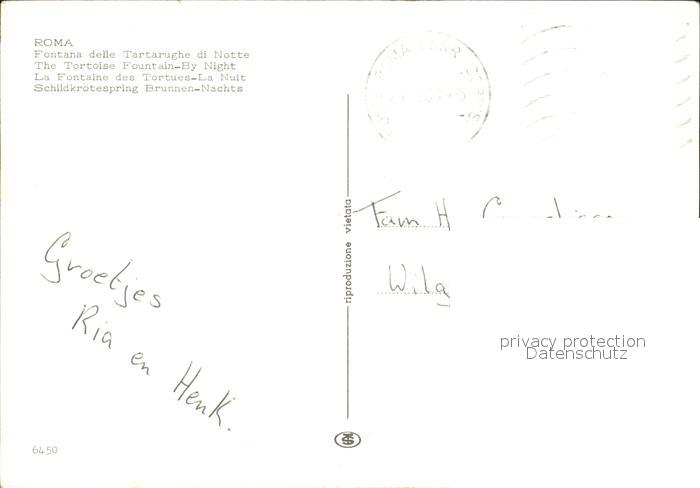 ROMA
Fontana delle Tartarughe di Notte
The Tortoise Fountain-By Night
La Fontaine des Tortues-La Nuit
Schildkrötespring Brunnen-Nachts
ROMA FERR
riproduzione vietata
Fam H
Groetjes
Ria en
Henk.
privacy protection
Datenschutz
6450